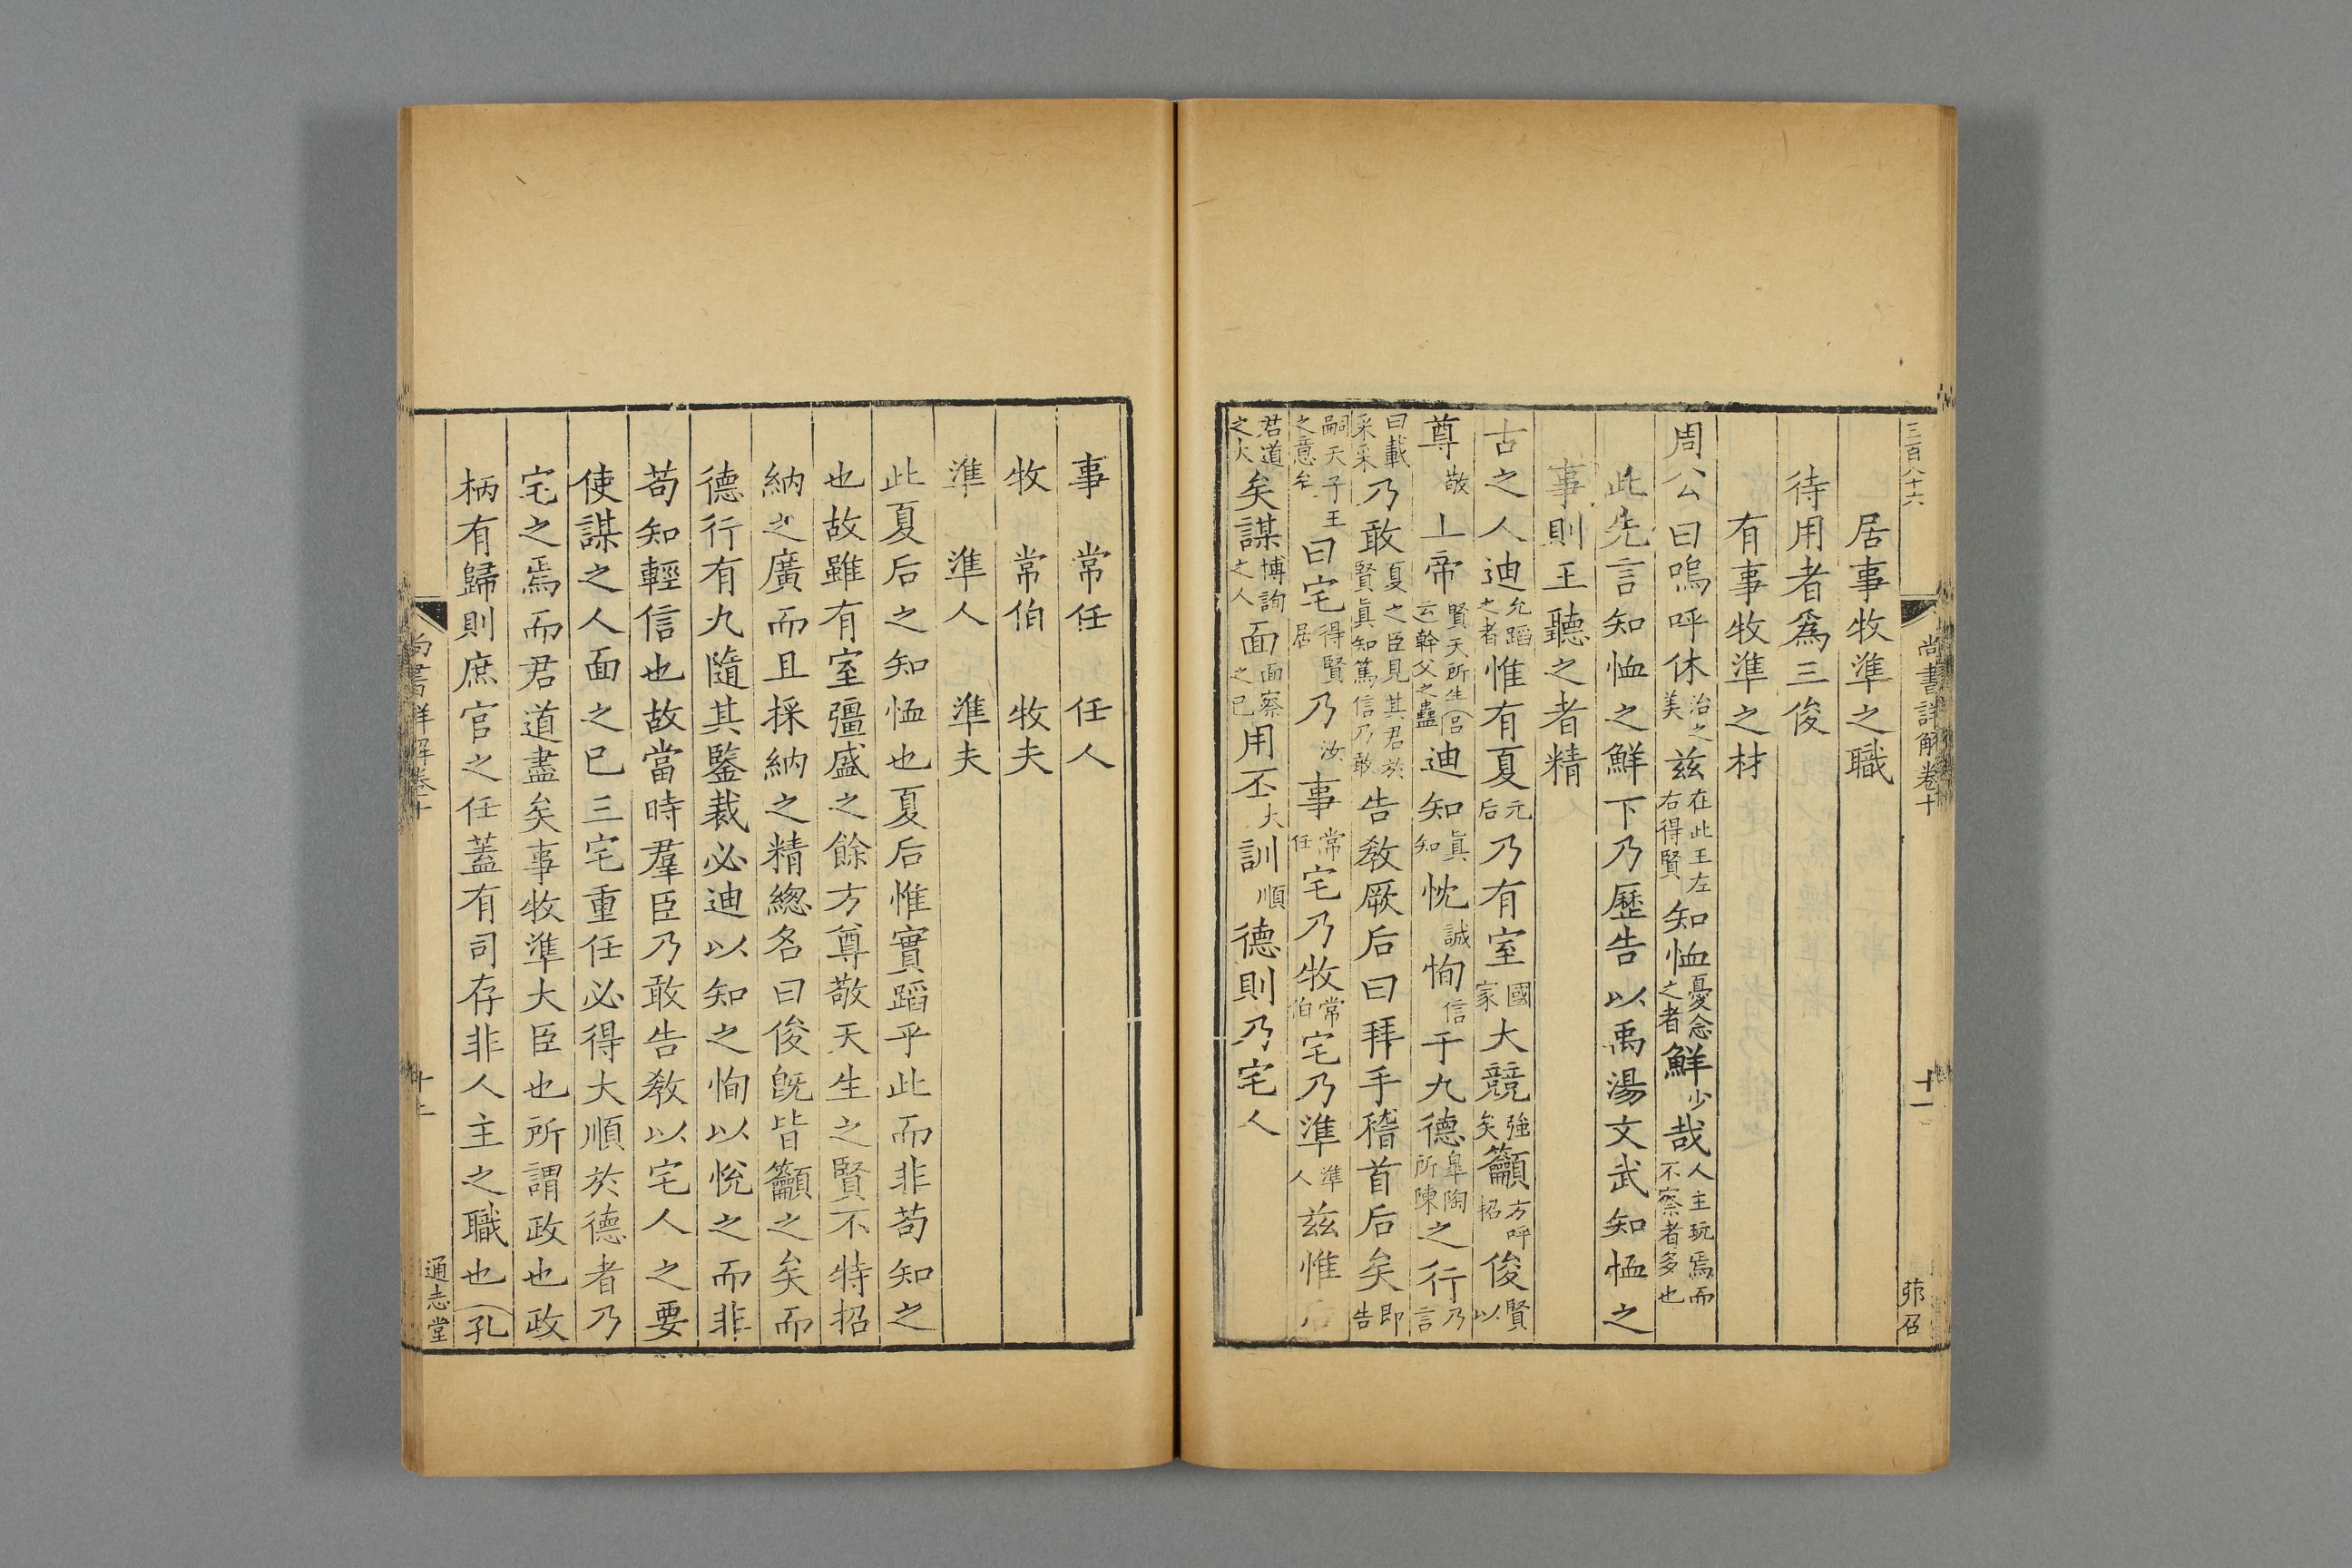 三百八十六
尚書詳解卷十
十一
居事牧準之職
待用者爲三俊
有事牧準之材
周公曰嗚呼休治之美茲在此王左右得賢知恤憂念之者鮮少哉人主玩焉而不察者多也
此先言知恤之鮮下乃歷告以禹湯文武知恤之
事則王聽之者精
古之人迪允蹈之者惟有夏元后乃有室國家大競強矣籲方呼招俊賢以
尊敬上帝賢天所生(呂云幹父之蠱迪知眞知忱誠恂信于九德皋陶所陳之行乃言
曰載采采乃敢夏之臣見其君於賢眞知篤信乃敢告敎厥后曰拜手稽首后矣即告
嗣天子王之意矣曰宅得賢居乃汝事常任宅乃牧常伯宅乃準準人茲惟后
君道之大矣謀博詢之人面面察之已用丕大訓順德則乃宅人
事　常任　任人
牧　常伯　牧夫
準　準人　準夫
此夏后之知恤也夏后惟實蹈乎此而非苟知之
也故雖有室彊盛之餘方尊敬天生之賢不特招
納之廣而且採納之精總名曰俊旣皆籲之矣而
德行有九隨其鑒裁必迪以知之恂以悅之而非
苟知輕信也故當時羣臣乃敢告敎以宅人之要
使謀之人面之已三宅重任必得大順於德者乃
宅之焉而君道盡矣事牧準大臣也所謂政也政
柄有歸則庶官之任蓋有司存非人主之職也(孔
尚書詳解卷十
通志堂